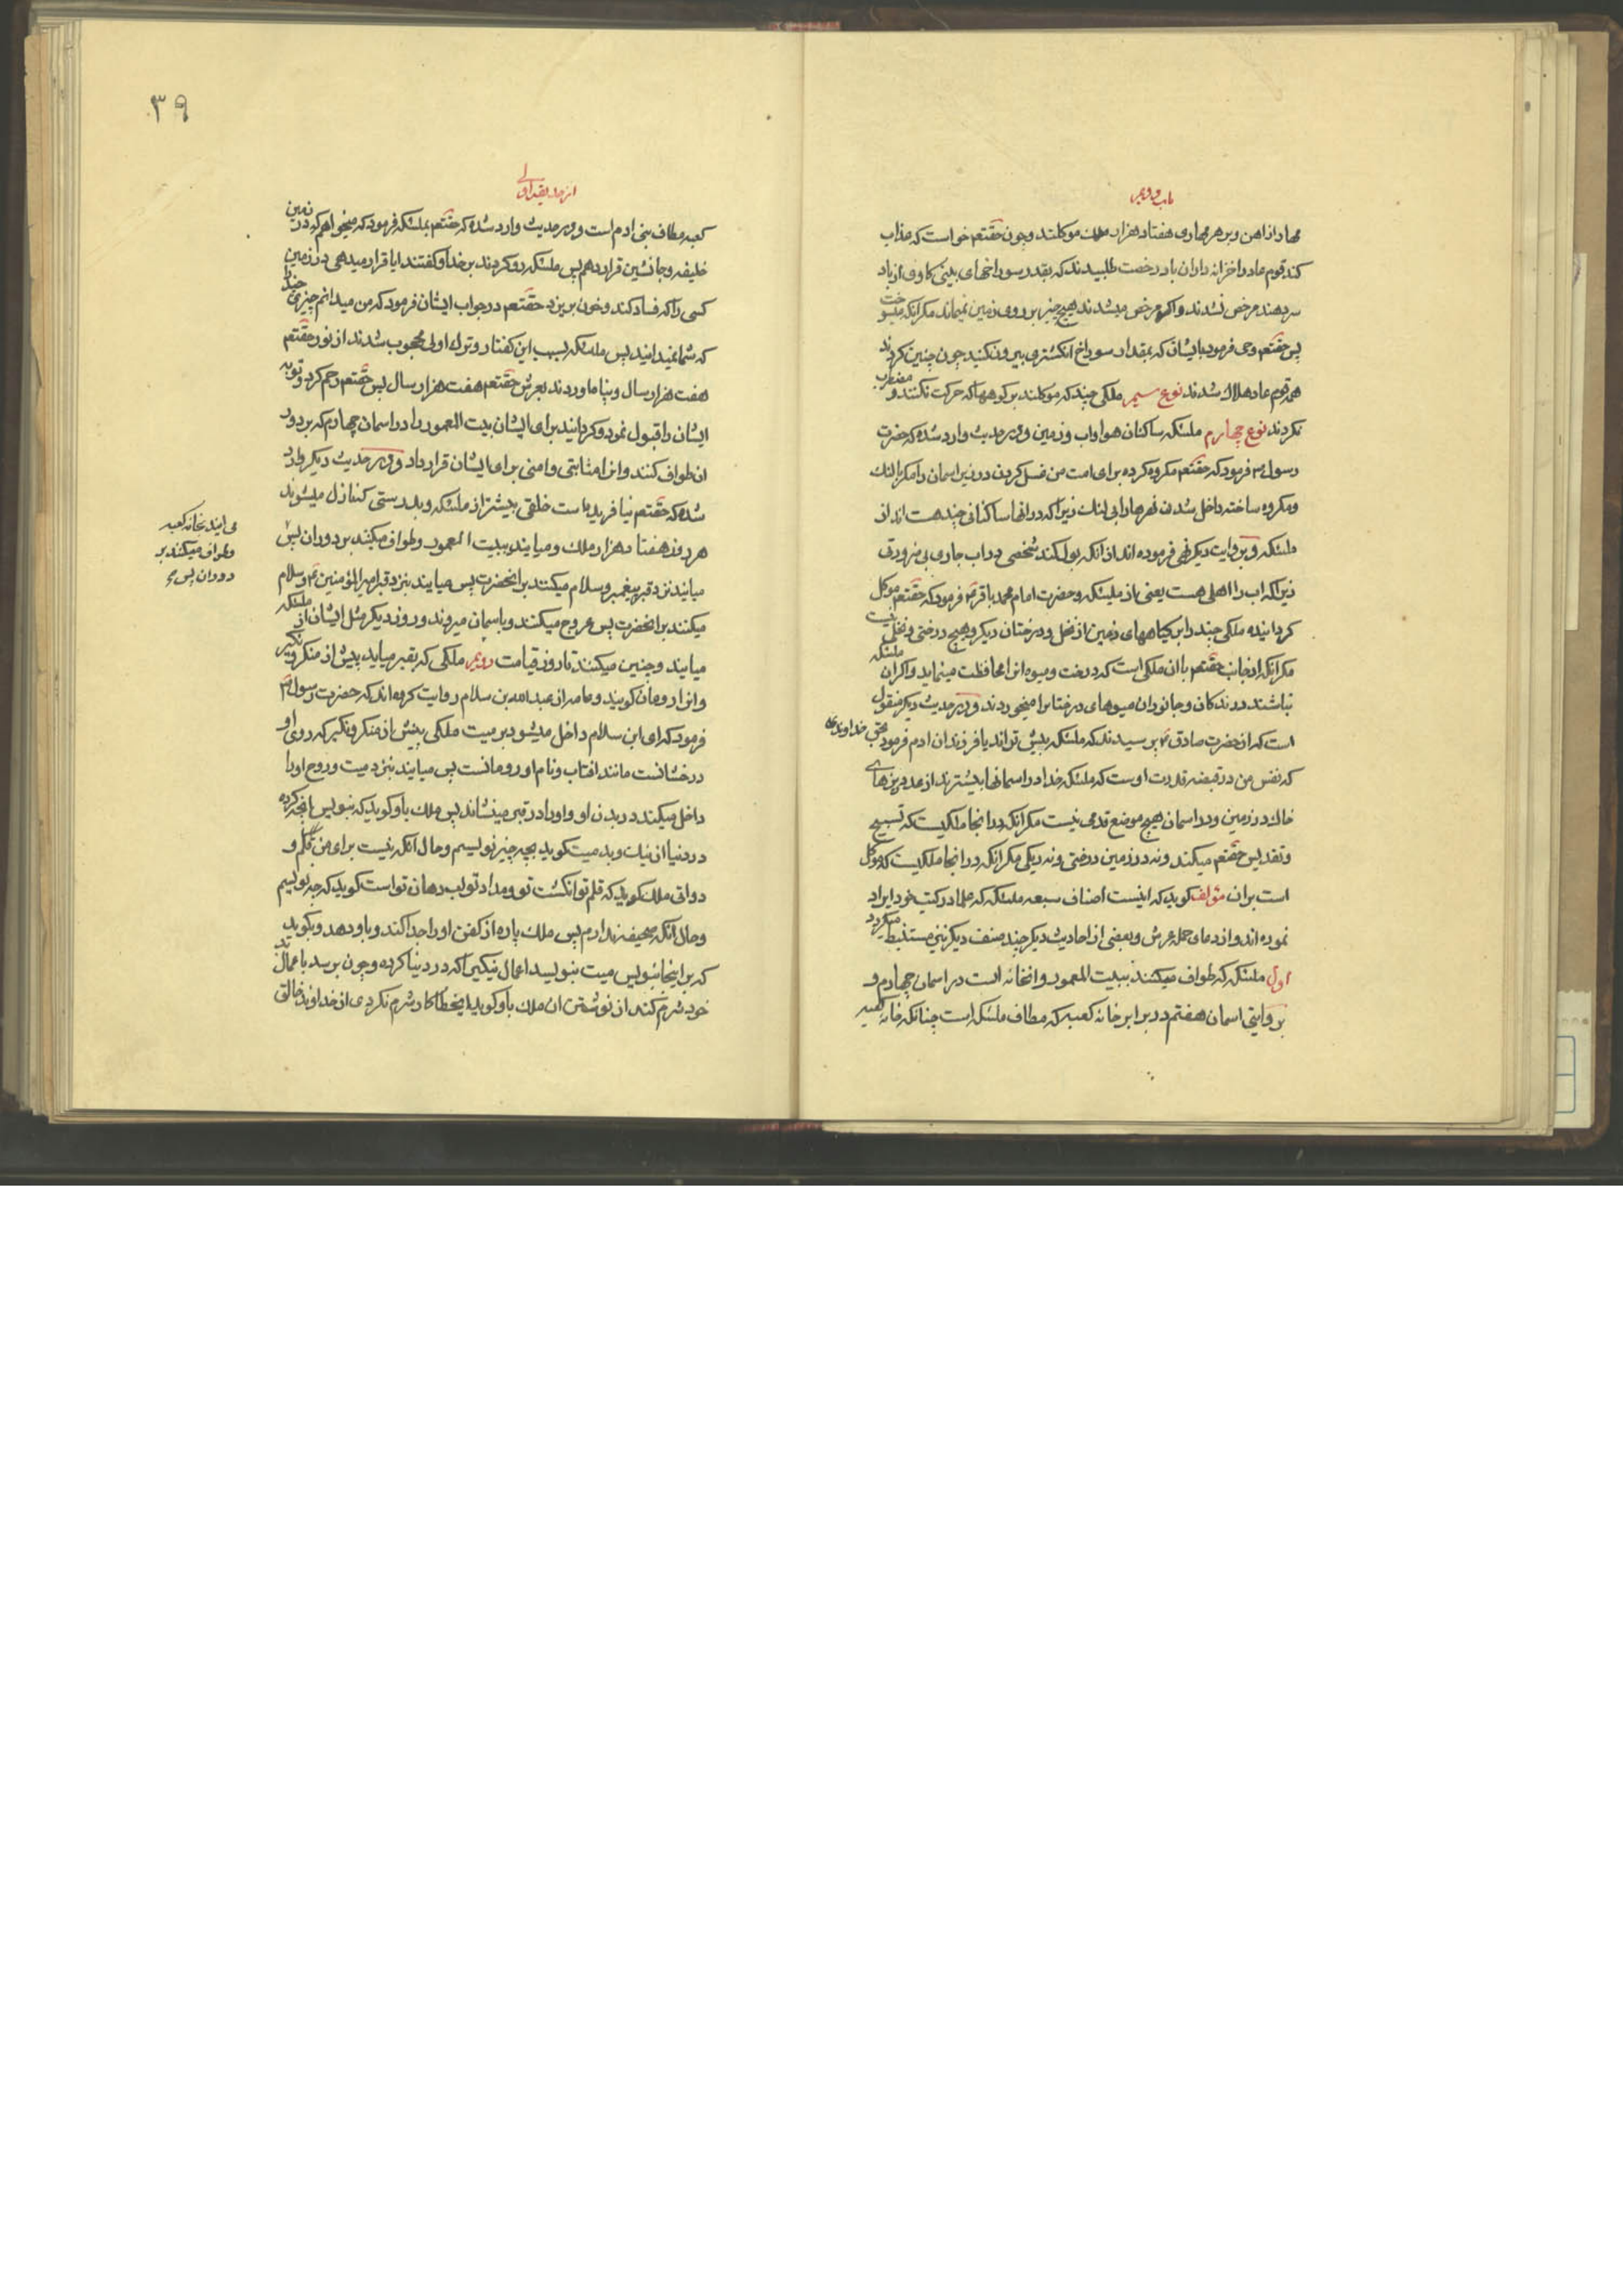 باب دویم
مهار از اهن و بر هر مهاری هفتاد هزار ملک موکلند و چون حقتعم خواست که عذاب
کند قوم عاد را خزانه داران باد رخصت طلبیدند که بقدر سوراخهای بینی کاوی از باد
سر دهند مرخص نشدند و اکر مرخص میشدند هیچ چیز بر روی زمین نمیماند مکر انکه میسوخت
پس حقتعم وحی فرمود بایشان که بمقدار سوراخ انکشتری بیرون کنید چون چنین کردند
همه قوم عاد هلاک شدند نوع سیم ملکی چند که موکلند بر کوهها که حرکت نکنند و مضطرب
نکردند نوع چهارم ملئکه ساکنان هوا و اب و زمین و در حدیث وارد شده که حضرت
رسول ص فرمود که حقتعم مکروه کرده برای امت من غسل کردن در زیر اسمان را مکر با لنک
و مکروه ساخته داخل شدن نهرها را بی لنک زیرا که در انها ساکنانی چند هست اند از
ملئکه و بروایت دیکر نهی فرموده اند از انکه بول کند شخصی در اب جاری بی ضرورتی
زیرا که اب را اهلی هست یعنی از ملیئکه و حضرت امام محمد باقر ع فرمود که حقتعم موکل
کردانیده ملکی چند را بر کیاههای زمین از نخل و درختان دیکر و هیچ درختی و نخلی نیست
مکر انکه از جانب حقتعم با ان ملکی است که درخت و میوه انرا محافظت مینماید و اکر ان ملئکه
نباشند درندکان و جانوران میوهای درختان را میخوردند و در حدیث دیکر منقول
است که از حضرت صادق ع پرسیدند که ملئکه بیش تراند یا فرزندان ادم فرمود بحق خداوندی
که نفس من در قبضه قدرت اوست که ملئکه خدا در اسمانها بیشترند از عدد ریزهای
خاک در زمین و در اسمان هیچ موضع قدمی نیست مکر انکه در انجا ملکیست که تسبیح
و تقدیس حقتعم میکند و نه در زمین درختی و نه ریکی مکر انکه در انجا ملکیست که موکل
است بر ان مؤلف کوید که اینست اصناف سبعه ملئکه که علما در کتب خود ایراد
نموده اند و از دعای حمله عرش و بعضی از احادیث دیکر چند صنف دیکر نیز مستنبط میکردد
اول ملئکه که طواف میکنند ببیت المعمور و انخانه است در اسمان چهارم و
بروایتی اسمان هفتم در برابر خانه کعبه که مطاف ملئکه است چنانکه خانه کعبه
۳۹
از حدیقه اولی
کعبه مطاف بنی ادم است و در حدیث وارد شده که حقتعم بملئکه فرمود که میخواهم که در زمین
خلیفه و جانشین قرار دهم پس ملئکه رو کردند بر خدا و کفتند ایا قرار میدهی در زمین
کسی را که فساد کند و خون بریزد حقتعم در جواب ایشان فرمود که من میدانم چیزی چند
که شما نمیدانید پس ملئکه بسبب این کفتار و ترک اولی محجوب شدند از نور حقتعم
هفت هزار سال و پناه اوردند بعرش حقتعم هفت هزار سال پس حقتعم رحم کرد و توبه
ایشان را قبول نمود و کردانید برای ایشان بیت المعمور را در اسمان چهارم که بر دور
ان طواف کنند و انرا مثابتی و امنی برای ایشان قرار داد و در حدیث دیکر وارد
شده که حقتعم نیافریده است خلقی بیشتر از ملئکه و بدرستی که نازل میشوند
هر روز هفتاد هزار ملک و میایند ببیت المعمور و طواف میکنند بر دور ان پس
می ایند بخانه کعبه
و طواف میکنند بر
دور ان پس
میایند نزد قبر پیغمبر و سلام میکنند بر انحضرت پس میایند بنزد قبر امیر المؤمنین ع و سلام
میکنند بر انحضرت پس عروج میکنند و باسمان میروند و روز دیکر مثل ایشان از ملئکه
میایند و چنین میکنند تا روز قیامت دویم ملکی که بقبر میاید پیش از منکر و نکیر
و انرا رومان کویند و عامه از عبدالله بن سلام روایت کرده اند که حضرت رسول ص
فرمود که ای ابن سلام داخل میشود بر میت ملکی پیش از منکر و نکیر که روی او
درخشانست مانند افتاب و نام او رومانست پس میایند بنزد میت و روح او را
داخل میکند در بدن او و او را در قبر مینشاند پس ملک باو کوید که بنویس انچه کرده
در دنیا از نیک و بد میت کوید بچه چیز نویسم و حال انکه نیست برای من قلم و
دواتی ملک کوید که قلم تو انکشت تو و مداد تو لب دهان تو است کوید که چه نویسم
و حال انکه صحیفه ندارم پس ملک پاره از کفن او را جدا کند و باو دهد و بکوید
که بر اینجا بنویس پس میت بنویسد اعمال نیکی را که در دنیا کرده و چون برسد باعمال بد
خود شرم کند از نوشتن ان ملک باو کوید ایخطاکار شرم نکردی از خداوند خالق